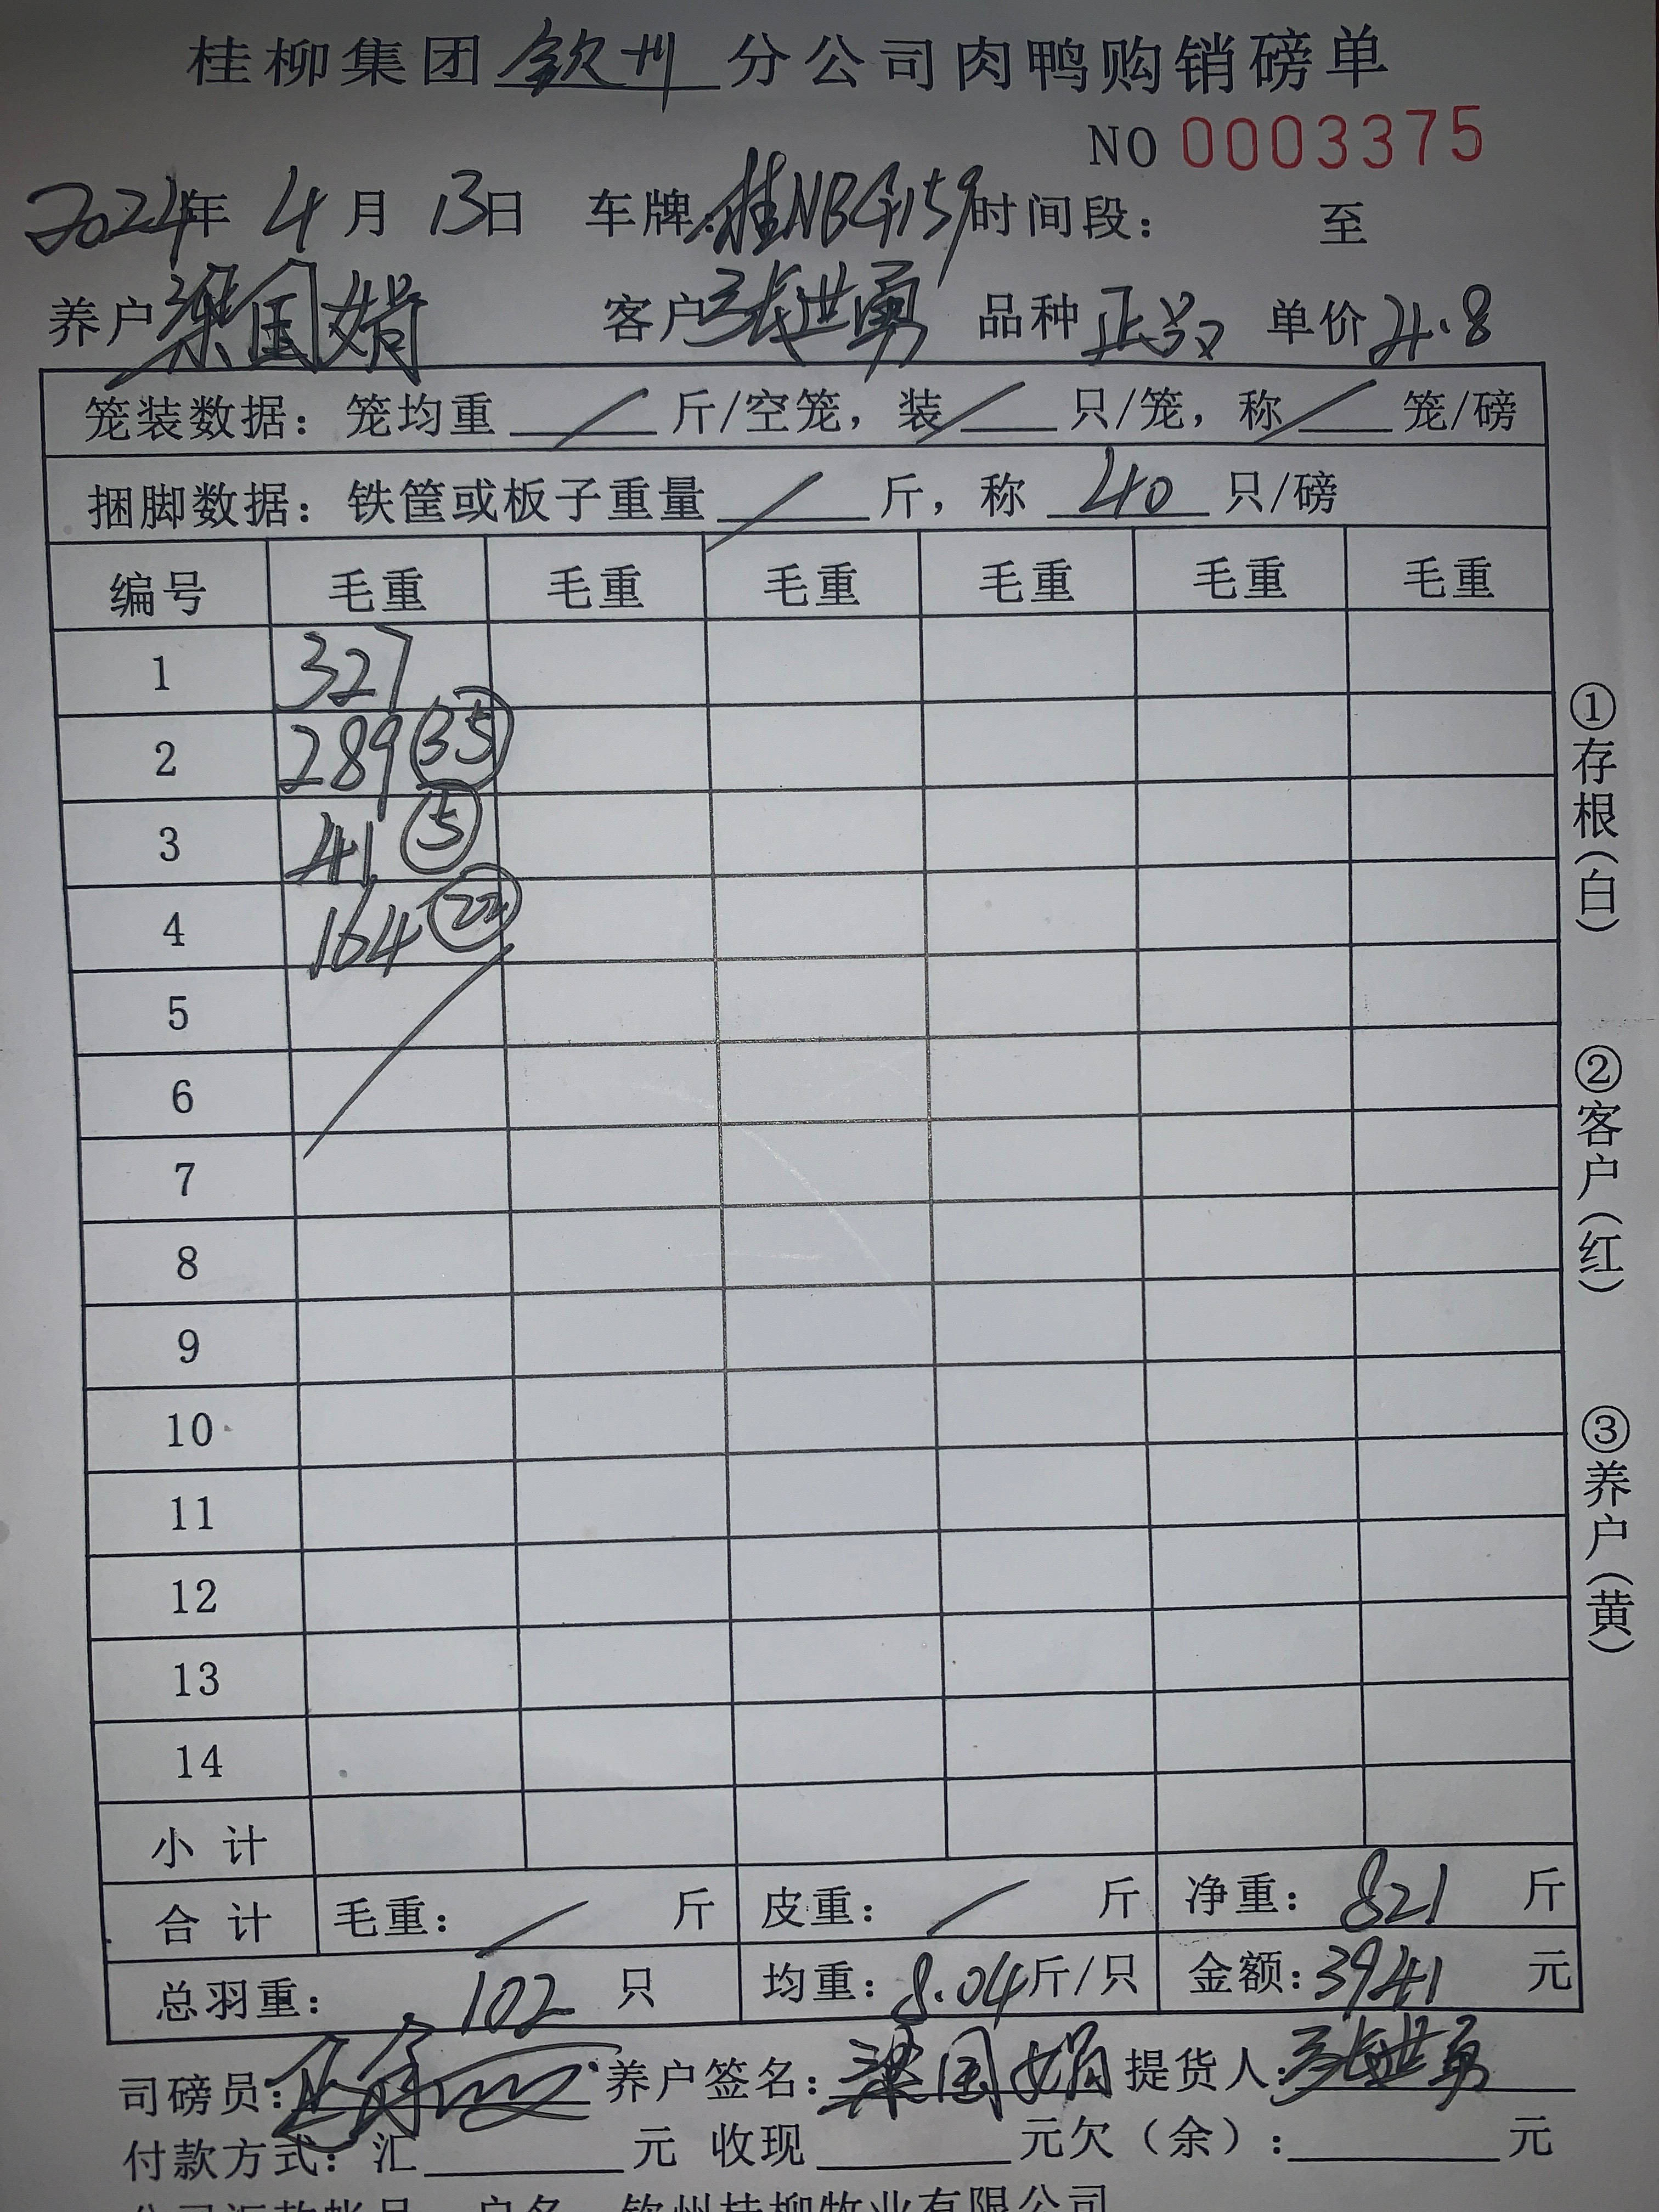 桂柳集团钦州分公司肉鸭购销磅单
NO 0003375
2024年 4月 13日 车牌:桂NBG159 时间段： 至
养户 梁国娟 客户 张世勇 品种 正 单价 4.8
笼装数据：笼均重 / 斤/空笼，装 / 只/笼，称 / 笼/磅
捆脚数据：铁筐或板子重量 / 斤，称 40 只/磅
编号 毛重 毛重 毛重 毛重 毛重 毛重
1 327
2 289 35
3 41 5
4 164 22
5
6
7
8
9
10
11
12
13
14
小计
合计 毛重： / 斤 皮重： / 斤 净重： 821 斤
总羽重： 102 只 均重：8.04斤/只 金额：3941 元
司磅员： 养户签名：梁国娟 提货人：张世勇
付款方式：汇 元 收现 元欠（余）： 元
户名 钦州桂柳牧业有限公司
①存根（白）
②客户（红）
③养户（黄）